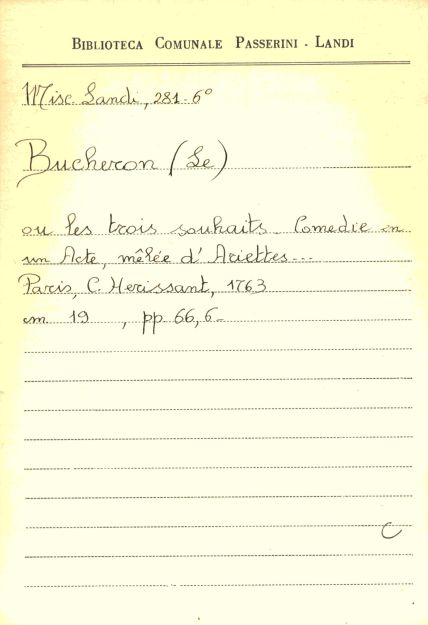 BIBLIOTECA COMUNALE PASSERINI - LANDI
Misc. Landi, 281-6°
Bucheron (Le)
ou les trois souhaits. Comedie en
un Acte, mêlée d'Ariettes...
Paris, C. Herissant, 1763
cm 19 , pp 66, 6-
C